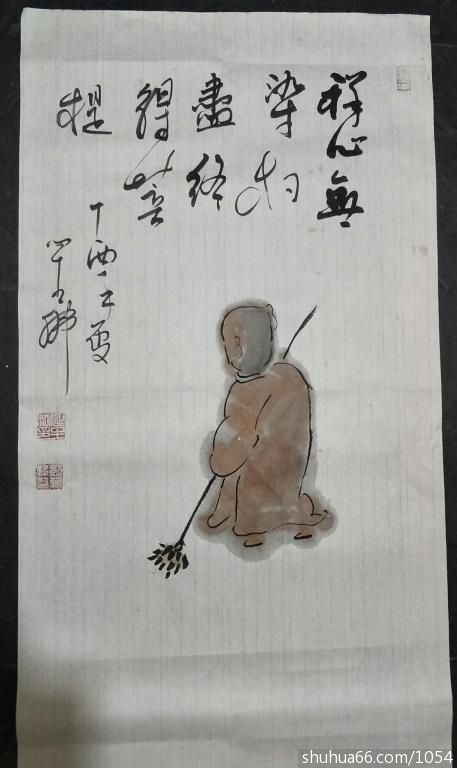 禅心無
染扫
盡終
得菩
提
丁酉年夏
shuhua66.com/1054